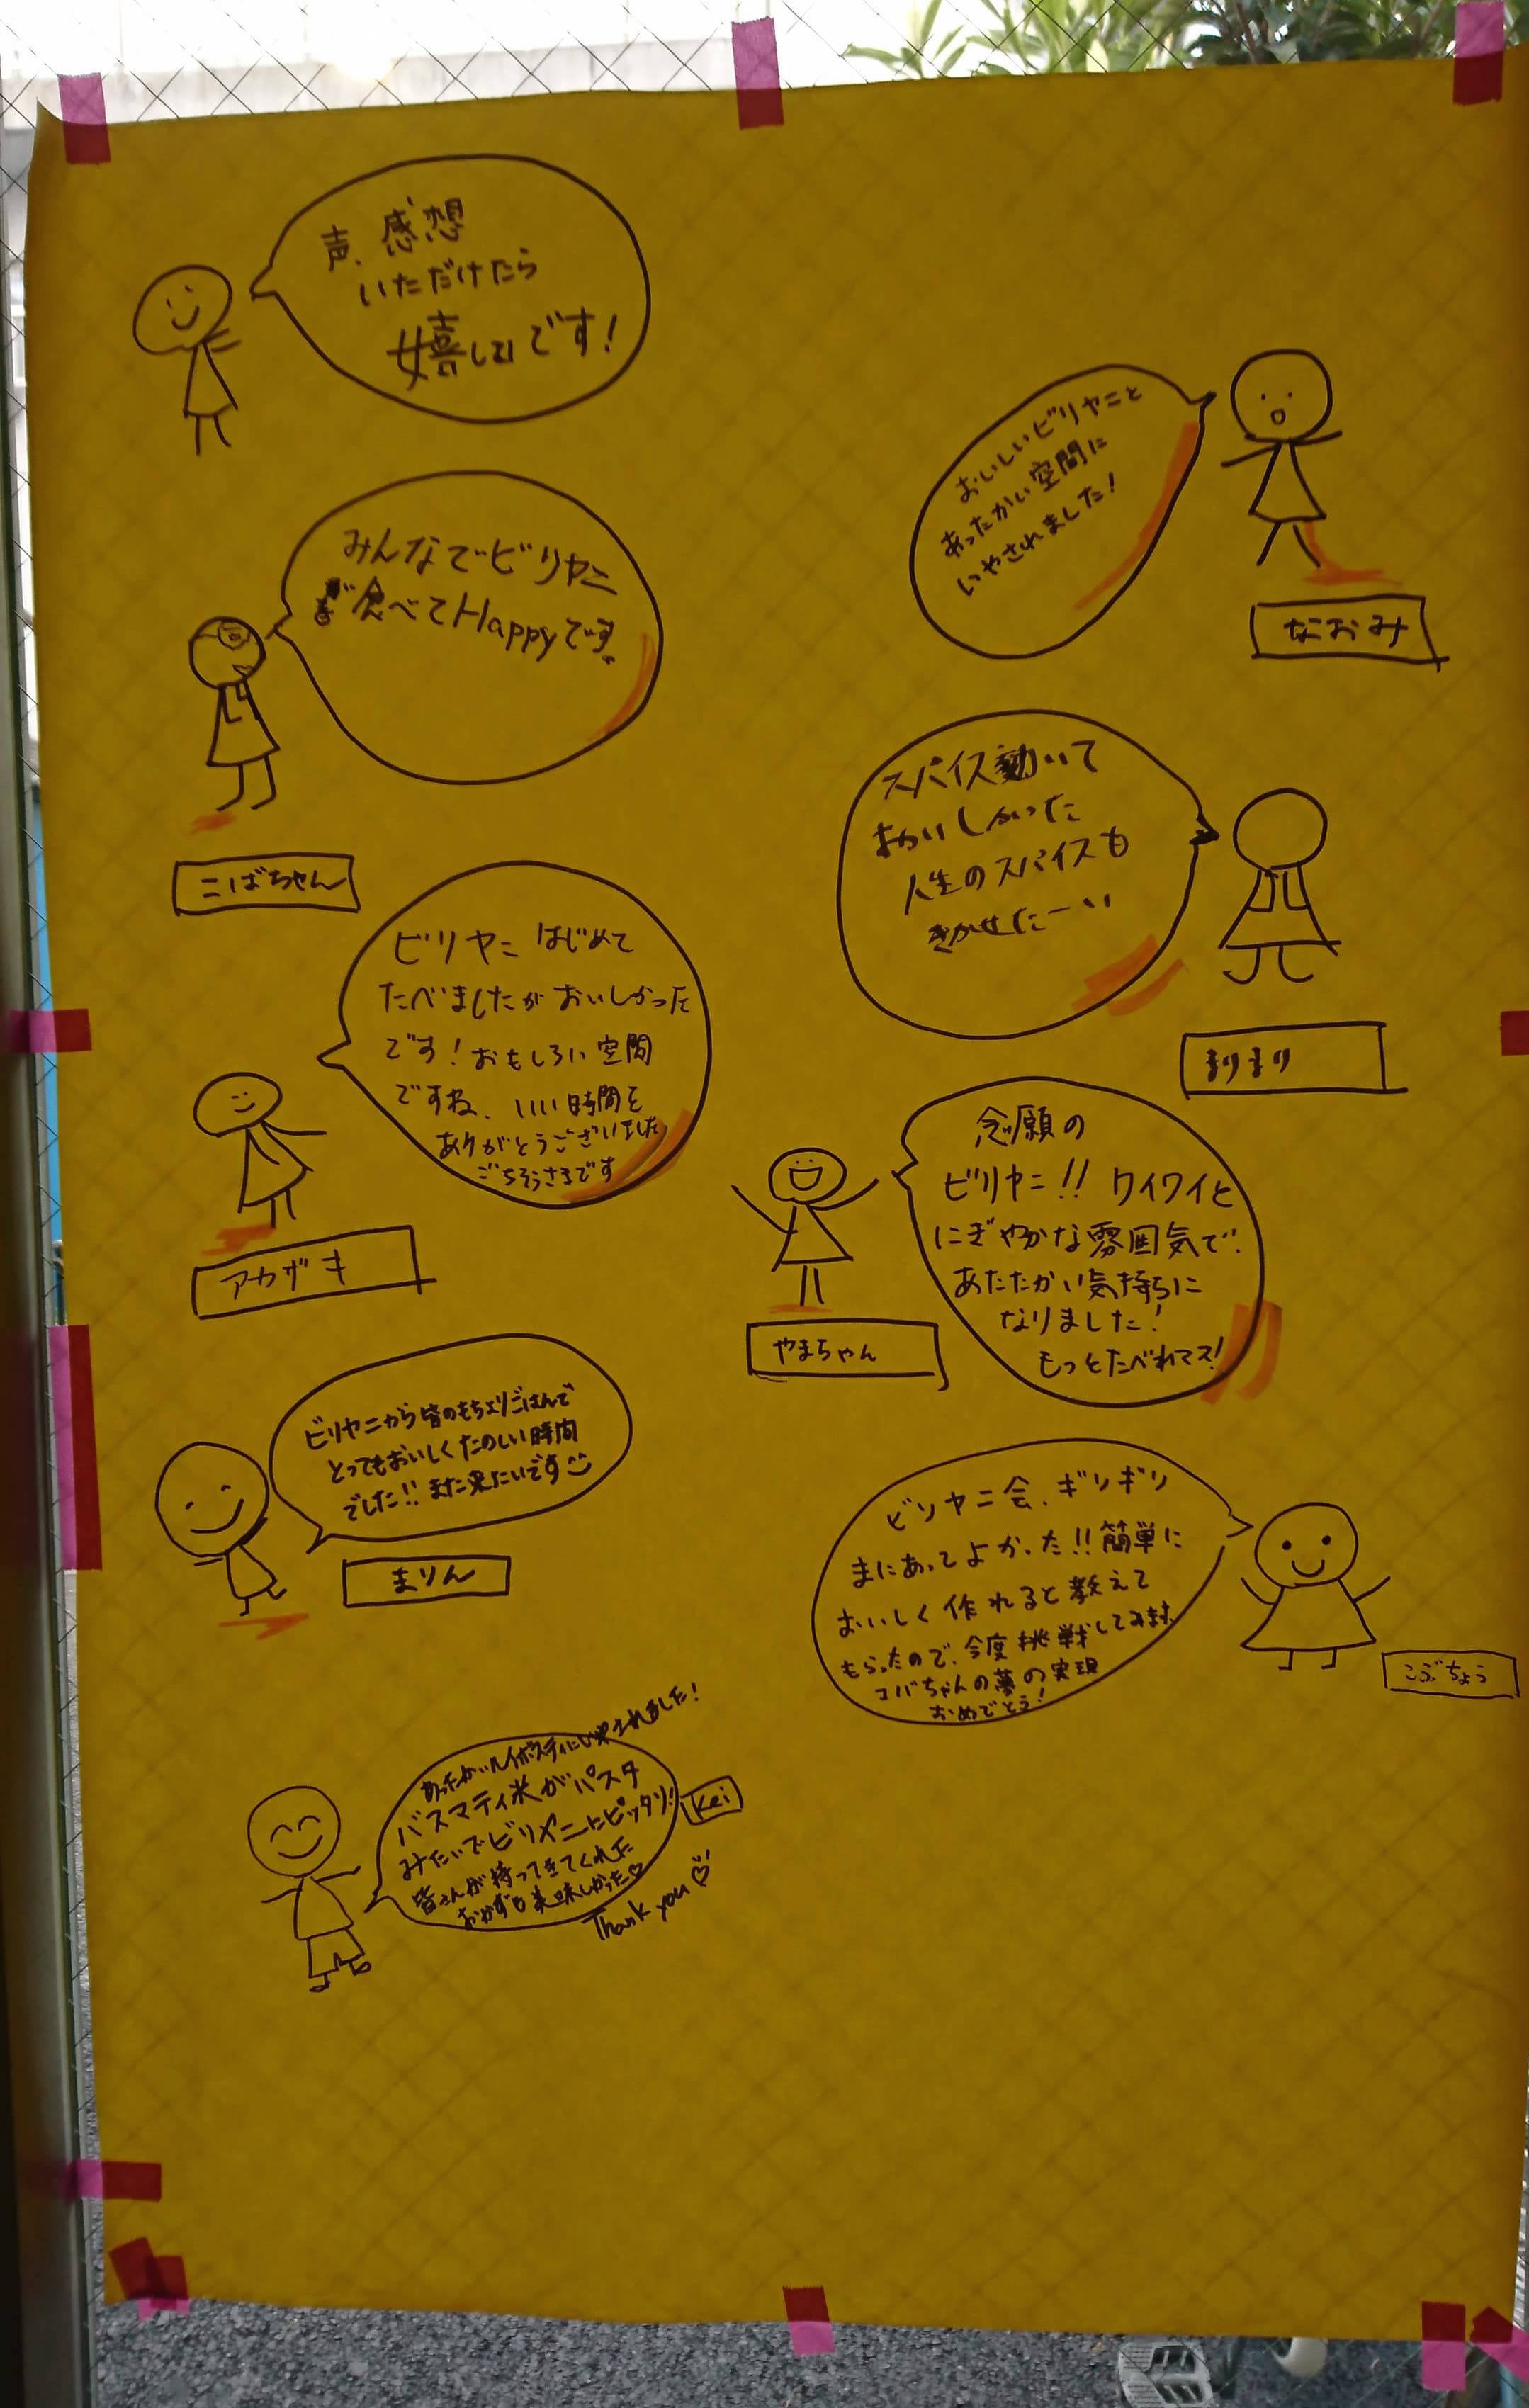 声、感想
いただけたら
嬉しいです!
おいしいビリヤニと
あったかい空間に
いやされました!
なおみ
みんなでビリヤニ
食べてHappyです。
こばちゃん
スパイス動いて
おいしかった
人生のスパイスも
きかせたーい
まりまり
ビリヤニ はじめて
たべましたが おいしかった
です!おもしろい空間
ですね、いい時間を
ありがとうございました
ごちそうさまです
アカザキ
念願の
ビリヤニ!! ワイワイと
にぎやかな雰囲気で
あたたかい気持ちに
なりました!
もっとたべれマス!
やまちゃん
ビリヤニから皆のもちよりごはんで
とってもおいしくたのしい時間
でした!! また来たいです
まりん
ビリヤニ会、ギリギリ
まにあってよかった!!簡単に
おいしく作れると教えて
もらったので、今度挑戦してみます。
コバちゃんの夢の実現
おめでとう!
こぶちょう
あったかいルイボスティにいやされました!
バスマティ米がパスタ
みたいでビリヤニにピッタリ!
皆さんが持ってきてくれた
おかずも美味しかった♡
Kei
Thank you♡